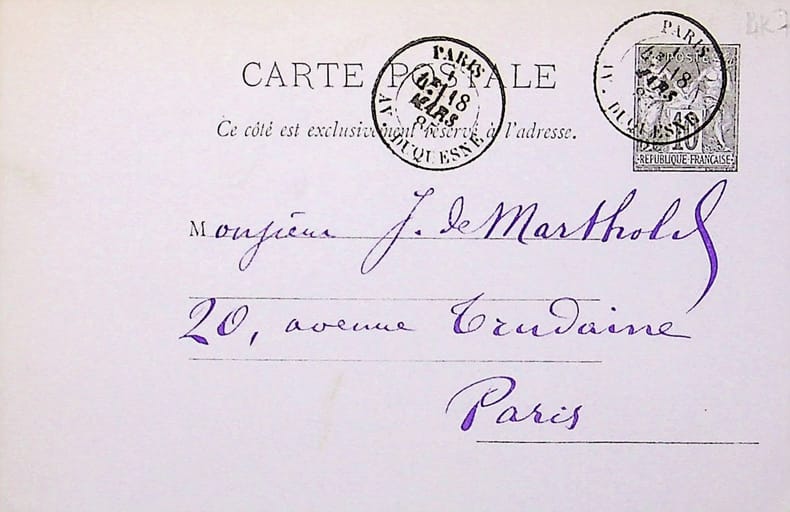 CARTE POSTALE
Ce côté est exclusivement réservé à l'adresse.
PARIS
18
MARS
85
AV. DUQUESNE
PARIS
18
MARS
AV. DUQUESNE
POSTE
10
REPUBLIQUE FRANÇAISE
Monsieur J. de Marthold
20, avenue Trudaine
Paris